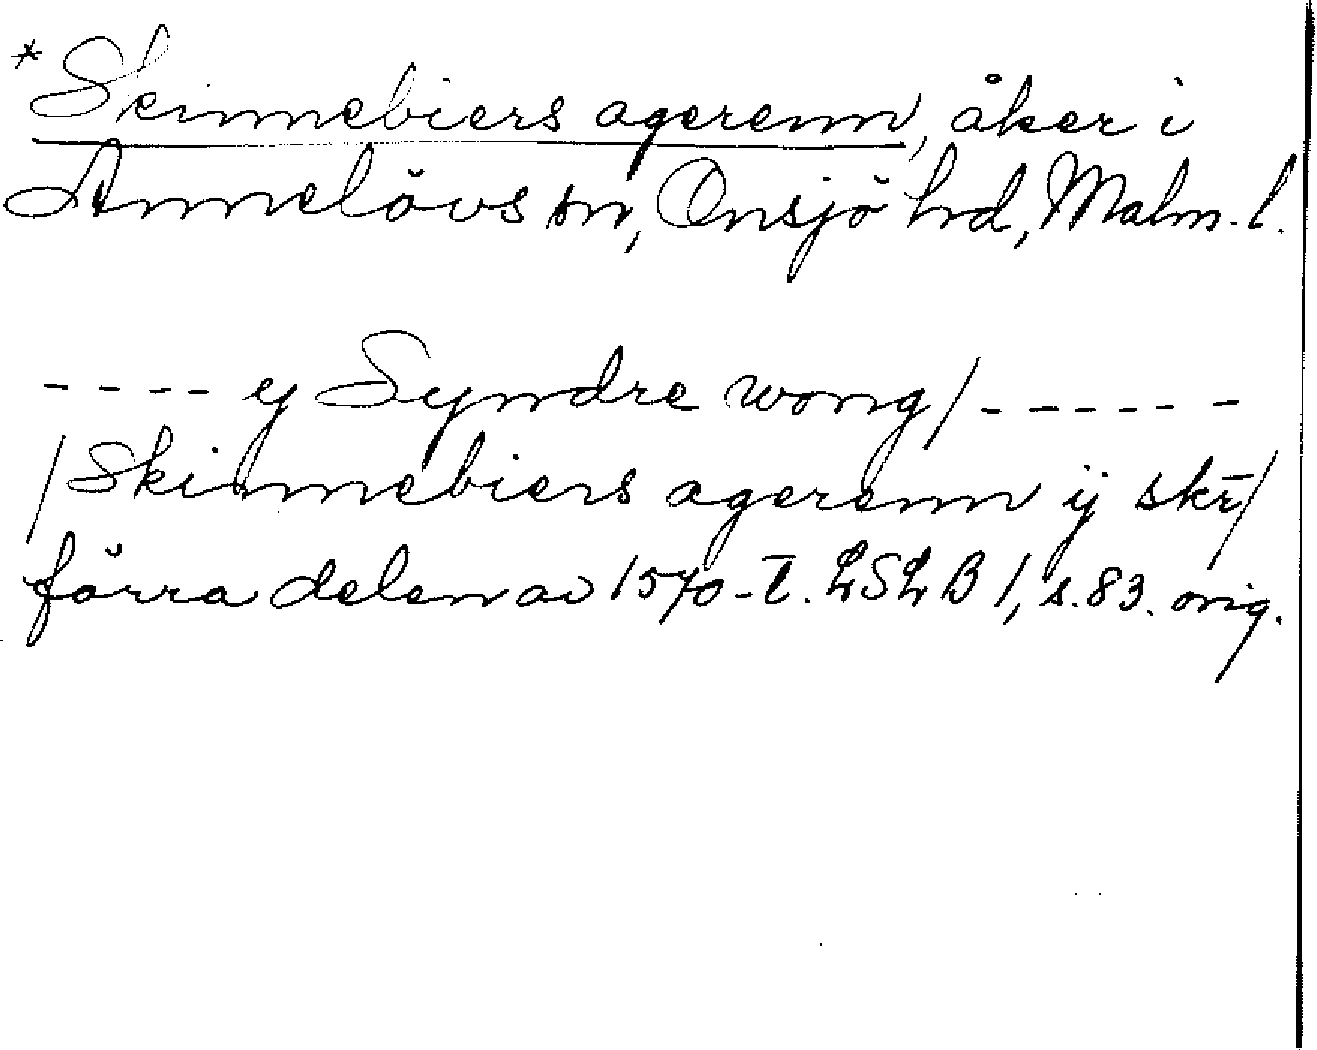 *Skinnebiers agerenn, åker i
Annelövs sn, Onsjö hrd, Malm. l.
---- ej Syndre wong/ ------
/Skinnebiers agerenn ij skr̄/
förra delen av 1570-t. LSLB 1, s. 83. orig.